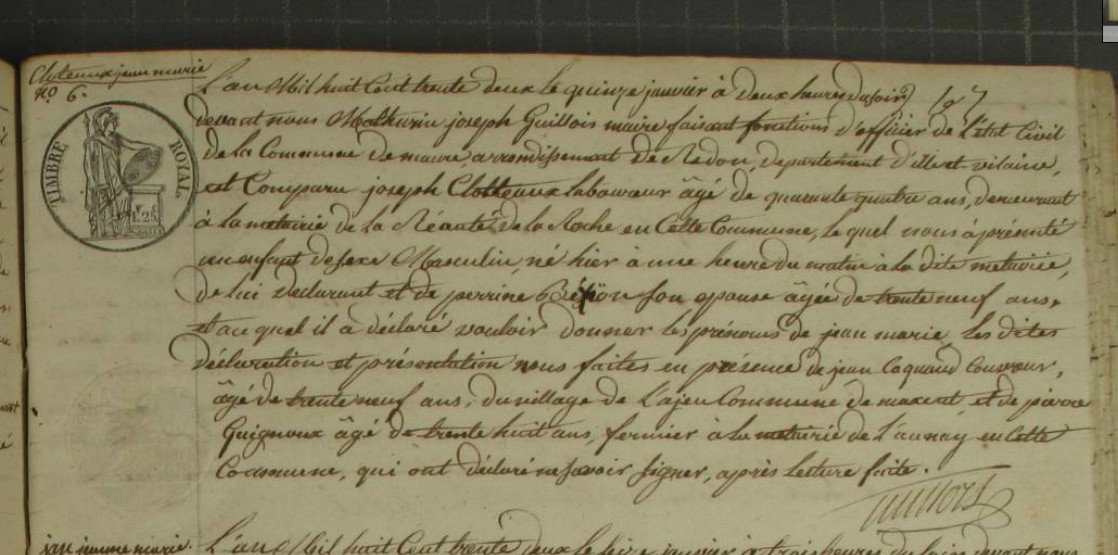 Cloteaux jean marie
No 6.
TIMBRE ROYAL
1.25
L'an Mil huit Cent trente deux le quinze janvier à Deux heures du soir
devant nous Mathurin joseph Guillois maire faisant fonctions d'officier de L'état Civil
de la Commune de maure arrondissement de Redon, département d'ille et vilaine,
est Comparu joseph Clotteaux laboureur âgé de quarante quatre ans, demeurant
à la metairie de la Réauté de la Roche en Cette Commune, le quel nous à présenté
un enfant de sexe Masculin, né hier à une heure du matin à la dite metairie,
de lui déclarant et de perrine son epouse âgée de trente neuf ans,
et au quel il à déclaré vouloir donner les prénoms de jean marie, les dites
déclaration et présentation nous faites en présence de jean Coquaud Couvreur,
âgé de trente neuf ans, du village de Lajeu Commune de maxent, et de pierre
Guignoux âgé de trente huit ans, fermier à la metairie de L'aunay en Cette
Commune, qui ont déclaré ne savoir signer, après lecture faite.
Guillois
jan jeanne marie.
L'an Mil huit Cent trente deux le seize janvier à trois heures du soir devant nous